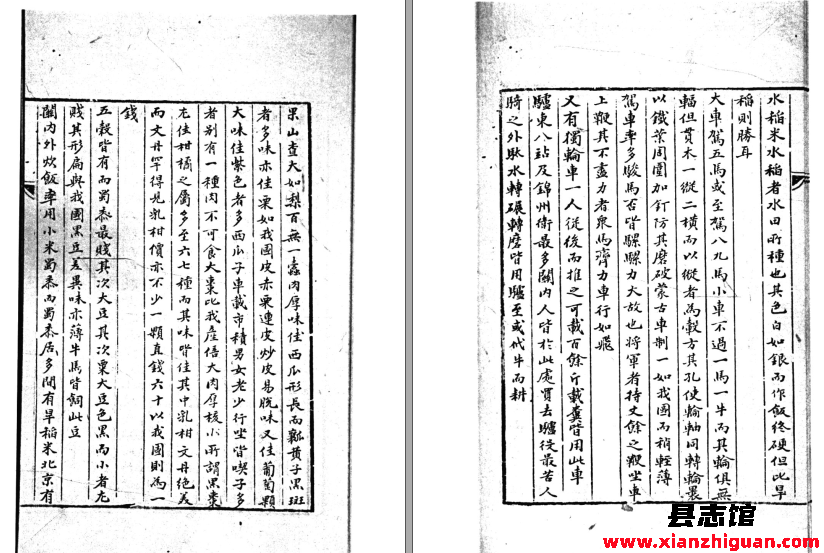 果山查大如梨百無一蠹肉厚味佳西瓜形長而瓤黃子黑斑
者多味亦佳栗如我國皮赤栗連皮炒皮易脫味又佳葡萄顆
大味佳紫色者多西瓜子車載市積男女老少行坐皆喫子多
者別有一種肉不可食大棗比我產倍大肉厚核小所謂黑棗
尤佳柑橘之屬多至六七種而其味皆佳其中乳柑文丹絕差
而文丹罕得見乳柑價亦不少一顆直錢六十以我國則爲一
錢
五穀皆有而蜀黍最賤其次大豆其次粟大豆色黑而小者尤
賤其形扁與我國黑豆差異味亦薄牛馬皆飼此豆
關內外炊飯率用小米蜀黍而蜀黍居多間有旱稻米北京有
水稻米水稻者水田所種也其色白如銀而作飯終硬但比旱
稻則勝耳
大車駕五馬或至駕八九馬小車不過一馬一牛而其輪俱無
輻但貫木一縱二橫而以縱者爲轂方其孔使輪軸同轉輪裹
以鐵葉周圍加釘防其磨破蒙古車制一如我國而稍輕薄
駕車率多駿馬否皆騾騾力大故也將軍者持丈餘之鞭坐車
上鞭其不盡力者衆馬齊力車行如飛
又有獨輪車一人從後而推之可載百餘斤載糞皆用此車
驢東八站及錦州衛最多關內人皆於此處買去驢役最苦人
騎之外馱水轉碾轉磨皆用驢至或代牛而耕
县志馆
www.xianzhiguan.com